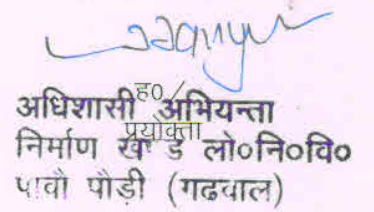 ह०/
अधिशासी अभियन्ता
प्रयोक्ता
निर्माण खण्ड लो०नि०वि०
पाबौ पौड़ी (गढवाल)